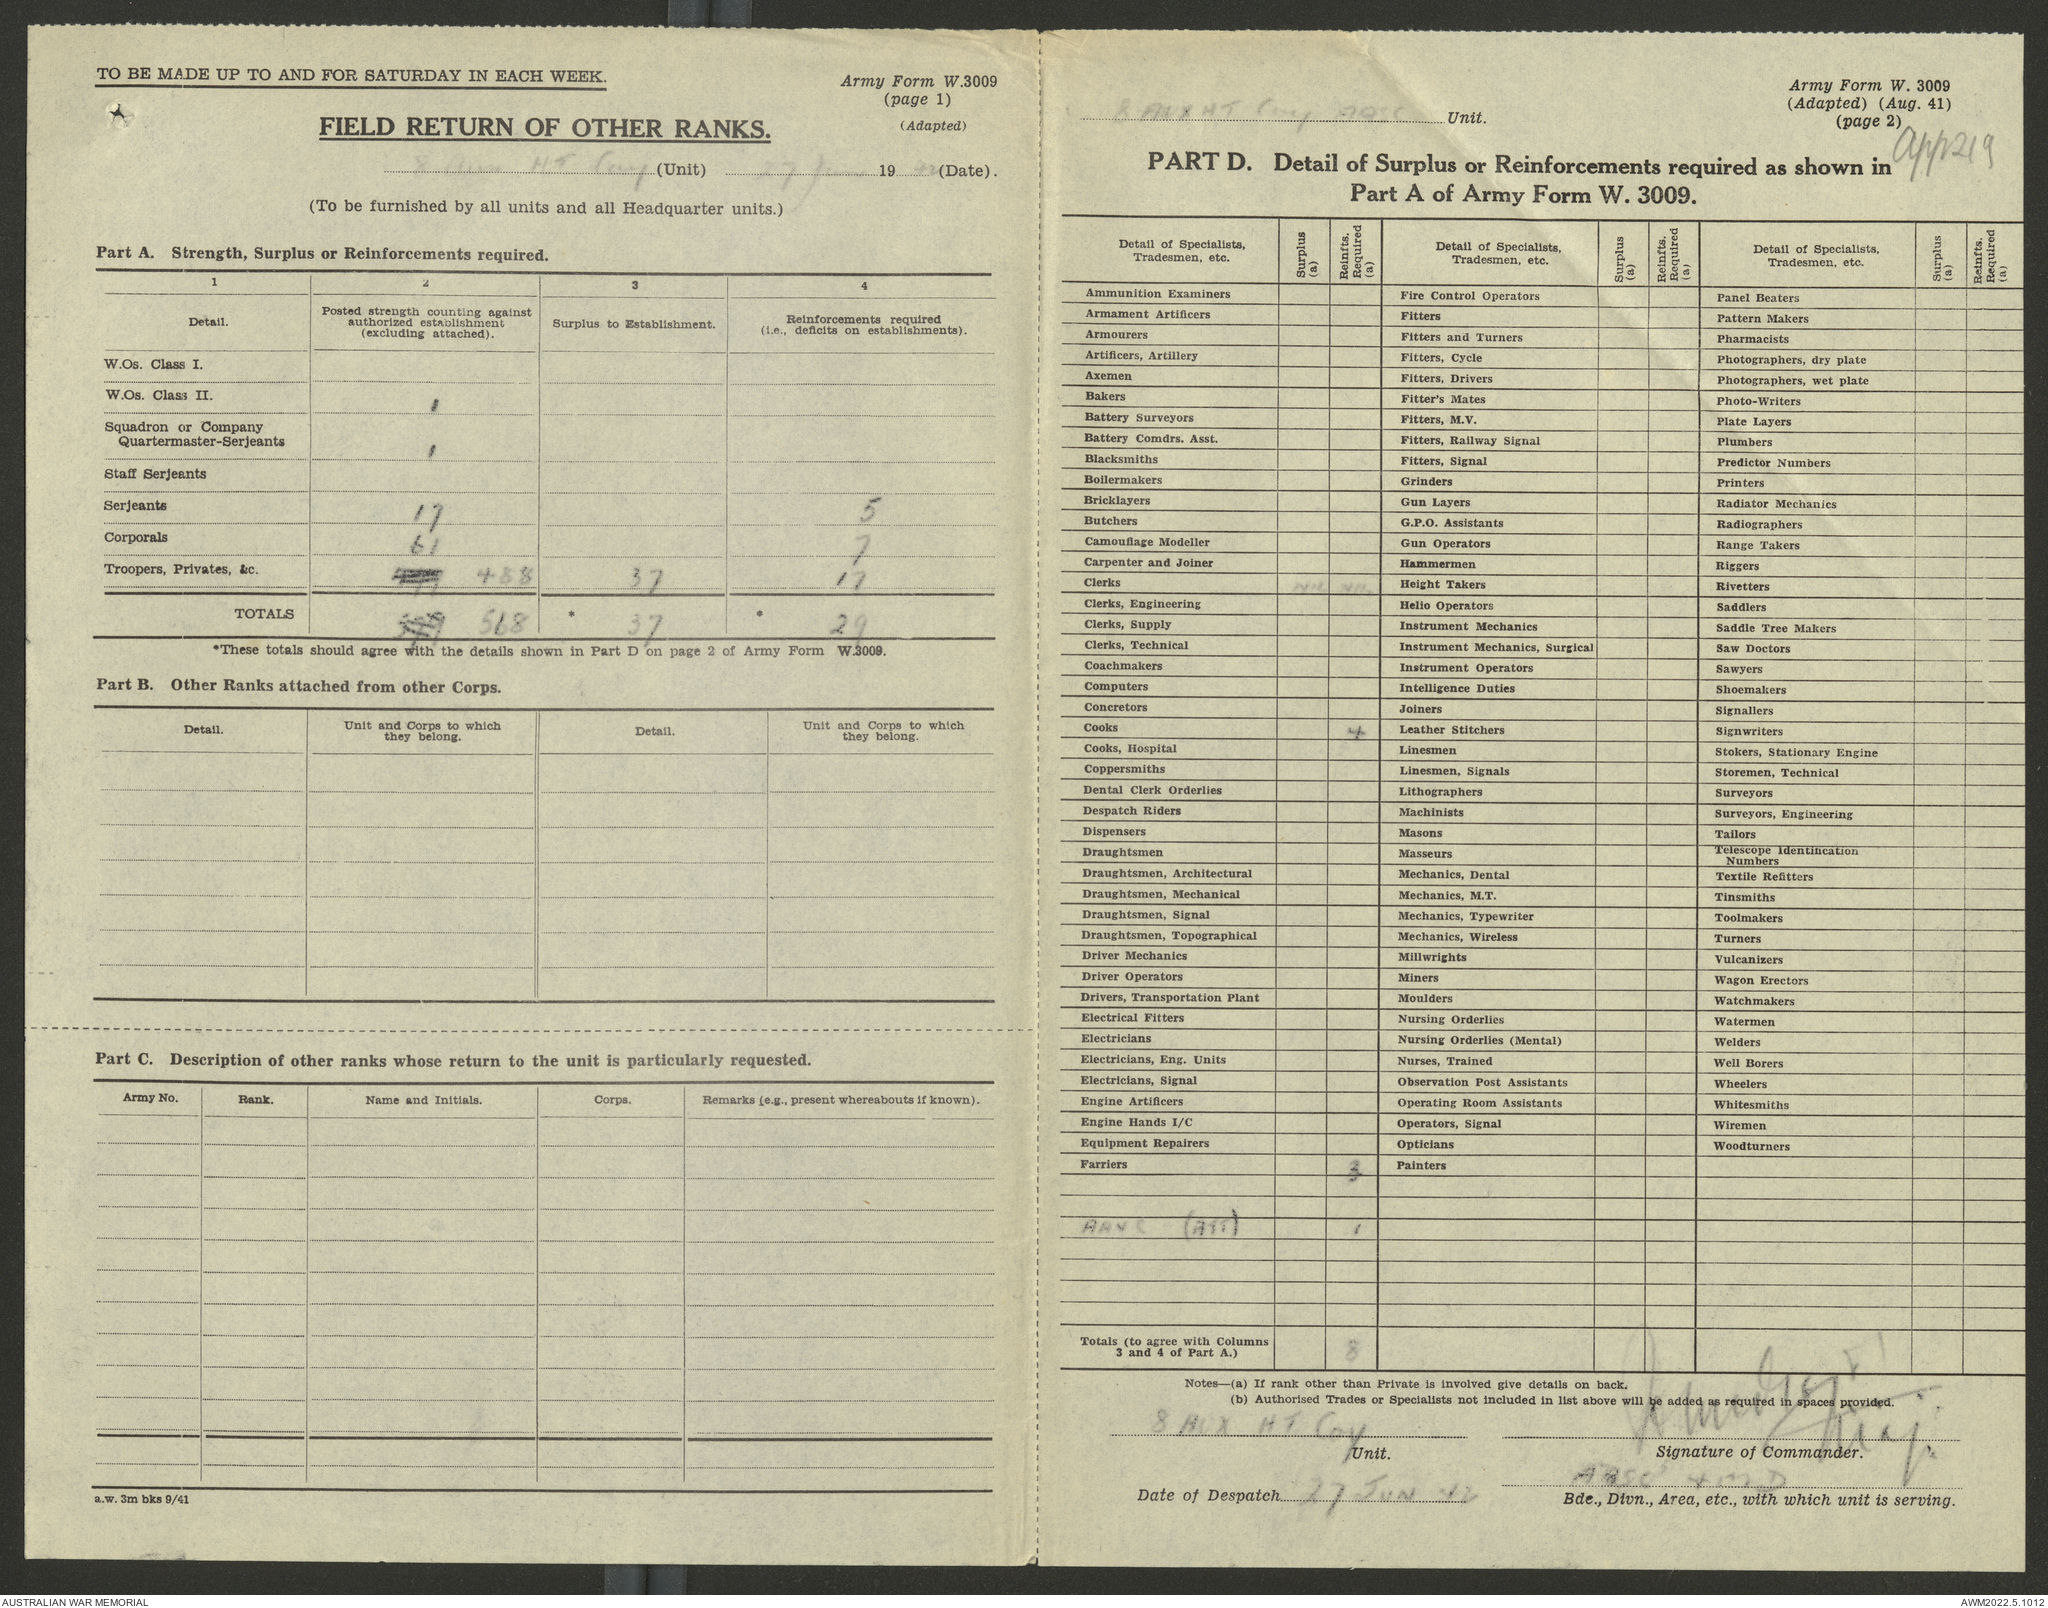 TO BE MADE UP TO AND FOR SATURDAY IN EACH WEEK.
Army Form W.3009
(page 1)
(Adapted)
FIELD RETURN OF OTHER RANKS.
8 Aux HT Coy (Unit) 27 June 1942 (Date).
(To be furnished by all units and all Headquarter units.)
Part A. Strength, Surplus or Reinforcements required.
1 2 3 4
Detail. Posted strength counting against authorized establishment (excluding attached). Surplus to Establishment. Reinforcements required (i.e., deficits on establishments).
W.Os. Class I.
W.Os. Class II. 1
Squadron or Company
Quartermaster-Serjeants 1
Staff Serjeants
Serjeants 17 5
Corporals 61 7
Troopers, Privates, &c. 488 37 17
TOTALS 568 * 37 * 29
*These totals should agree with the details shown in Part D on page 2 of Army Form W.3009.
Part B. Other Ranks attached from other Corps.
Detail. Unit and Corps to which they belong. Detail. Unit and Corps to which they belong.
Part C. Description of other ranks whose return to the unit is particularly requested.
Army No. Rank. Name and Initials. Corps. Remarks (e.g., present whereabouts if known).
a.w. 3m bks 9/41
8 AUX HT Coy AASC Unit.
Army Form W. 3009
(Adapted) (Aug. 41)
(page 2)
App 219
PART D. Detail of Surplus or Reinforcements required as shown in
Part A of Army Form W. 3009.
Detail of Specialists, Tradesmen, etc. Surplus (a) Reinfts. Required (a) Detail of Specialists, Tradesmen, etc. Surplus (a) Reinfts. Required (a) Detail of Specialists, Tradesmen, etc. Surplus (a) Reinfts. Required (a)
Ammunition Examiners Fire Control Operators Panel Beaters
Armament Artificers Fitters Pattern Makers
Armourers Fitters and Turners Pharmacists
Artificers, Artillery Fitters, Cycle Photographers, dry plate
Axemen Fitters, Drivers Photographers, wet plate
Bakers Fitter's Mates Photo-Writers
Battery Surveyors Fitters, M.V. Plate Layers
Battery Comdrs. Asst. Fitters, Railway Signal Plumbers
Blacksmiths Fitters, Signal Predictor Numbers
Boilermakers Grinders Printers
Bricklayers Gun Layers Radiator Mechanics
Butchers G.P.O. Assistants Radiographers
Camouflage Modeller Gun Operators Range Takers
Carpenter and Joiner Hammermen Riggers
Clerks Height Takers Rivetters
Clerks, Engineering Helio Operators Saddlers
Clerks, Supply Instrument Mechanics Saddle Tree Makers
Clerks, Technical Instrument Mechanics, Surgical Saw Doctors
Coachmakers Instrument Operators Sawyers
Computers Intelligence Duties Shoemakers
Concretors Joiners Signallers
Cooks 4 Leather Stitchers Signwriters
Cooks, Hospital Linesmen Stokers, Stationary Engine
Coppersmiths Linesmen, Signals Storemen, Technical
Dental Clerk Orderlies Lithographers Surveyors
Despatch Riders Machinists Surveyors, Engineering
Dispensers Masons Tailors
Draughtsmen Masseurs Telescope Identification Numbers
Draughtsmen, Architectural Mechanics, Dental Textile Refitters
Draughtsmen, Mechanical Mechanics, M.T. Tinsmiths
Draughtsmen, Signal Mechanics, Typewriter Toolmakers
Draughtsmen, Topographical Mechanics, Wireless Turners
Driver Mechanics Millwrights Vulcanizers
Driver Operators Miners Wagon Erectors
Drivers, Transportation Plant Moulders Watchmakers
Electrical Fitters Nursing Orderlies Watermen
Electricians Nursing Orderlies (Mental) Welders
Electricians, Eng. Units Nurses, Trained Well Borers
Electricians, Signal Observation Post Assistants Wheelers
Engine Artificers Operating Room Assistants Whitesmiths
Engine Hands I/C Operators, Signal Wiremen
Equipment Repairers Opticians Woodturners
Farriers 3 Painters
AAVC (Att) 1
Totals (to agree with Columns 3 and 4 of Part A.) 8
Notes—(a) If rank other than Private is involved give details on back.
(b) Authorised Trades or Specialists not included in list above will be added as required in spaces provided.
8 AUX HT Coy
Unit.
Maj.
Signature of Commander.
Date of Despatch 27 JUN 42
AASC 4 M D
Bde., Divn., Area, etc., with which unit is serving.
AUSTRALIAN WAR MEMORIAL
AWM2022.5.1012